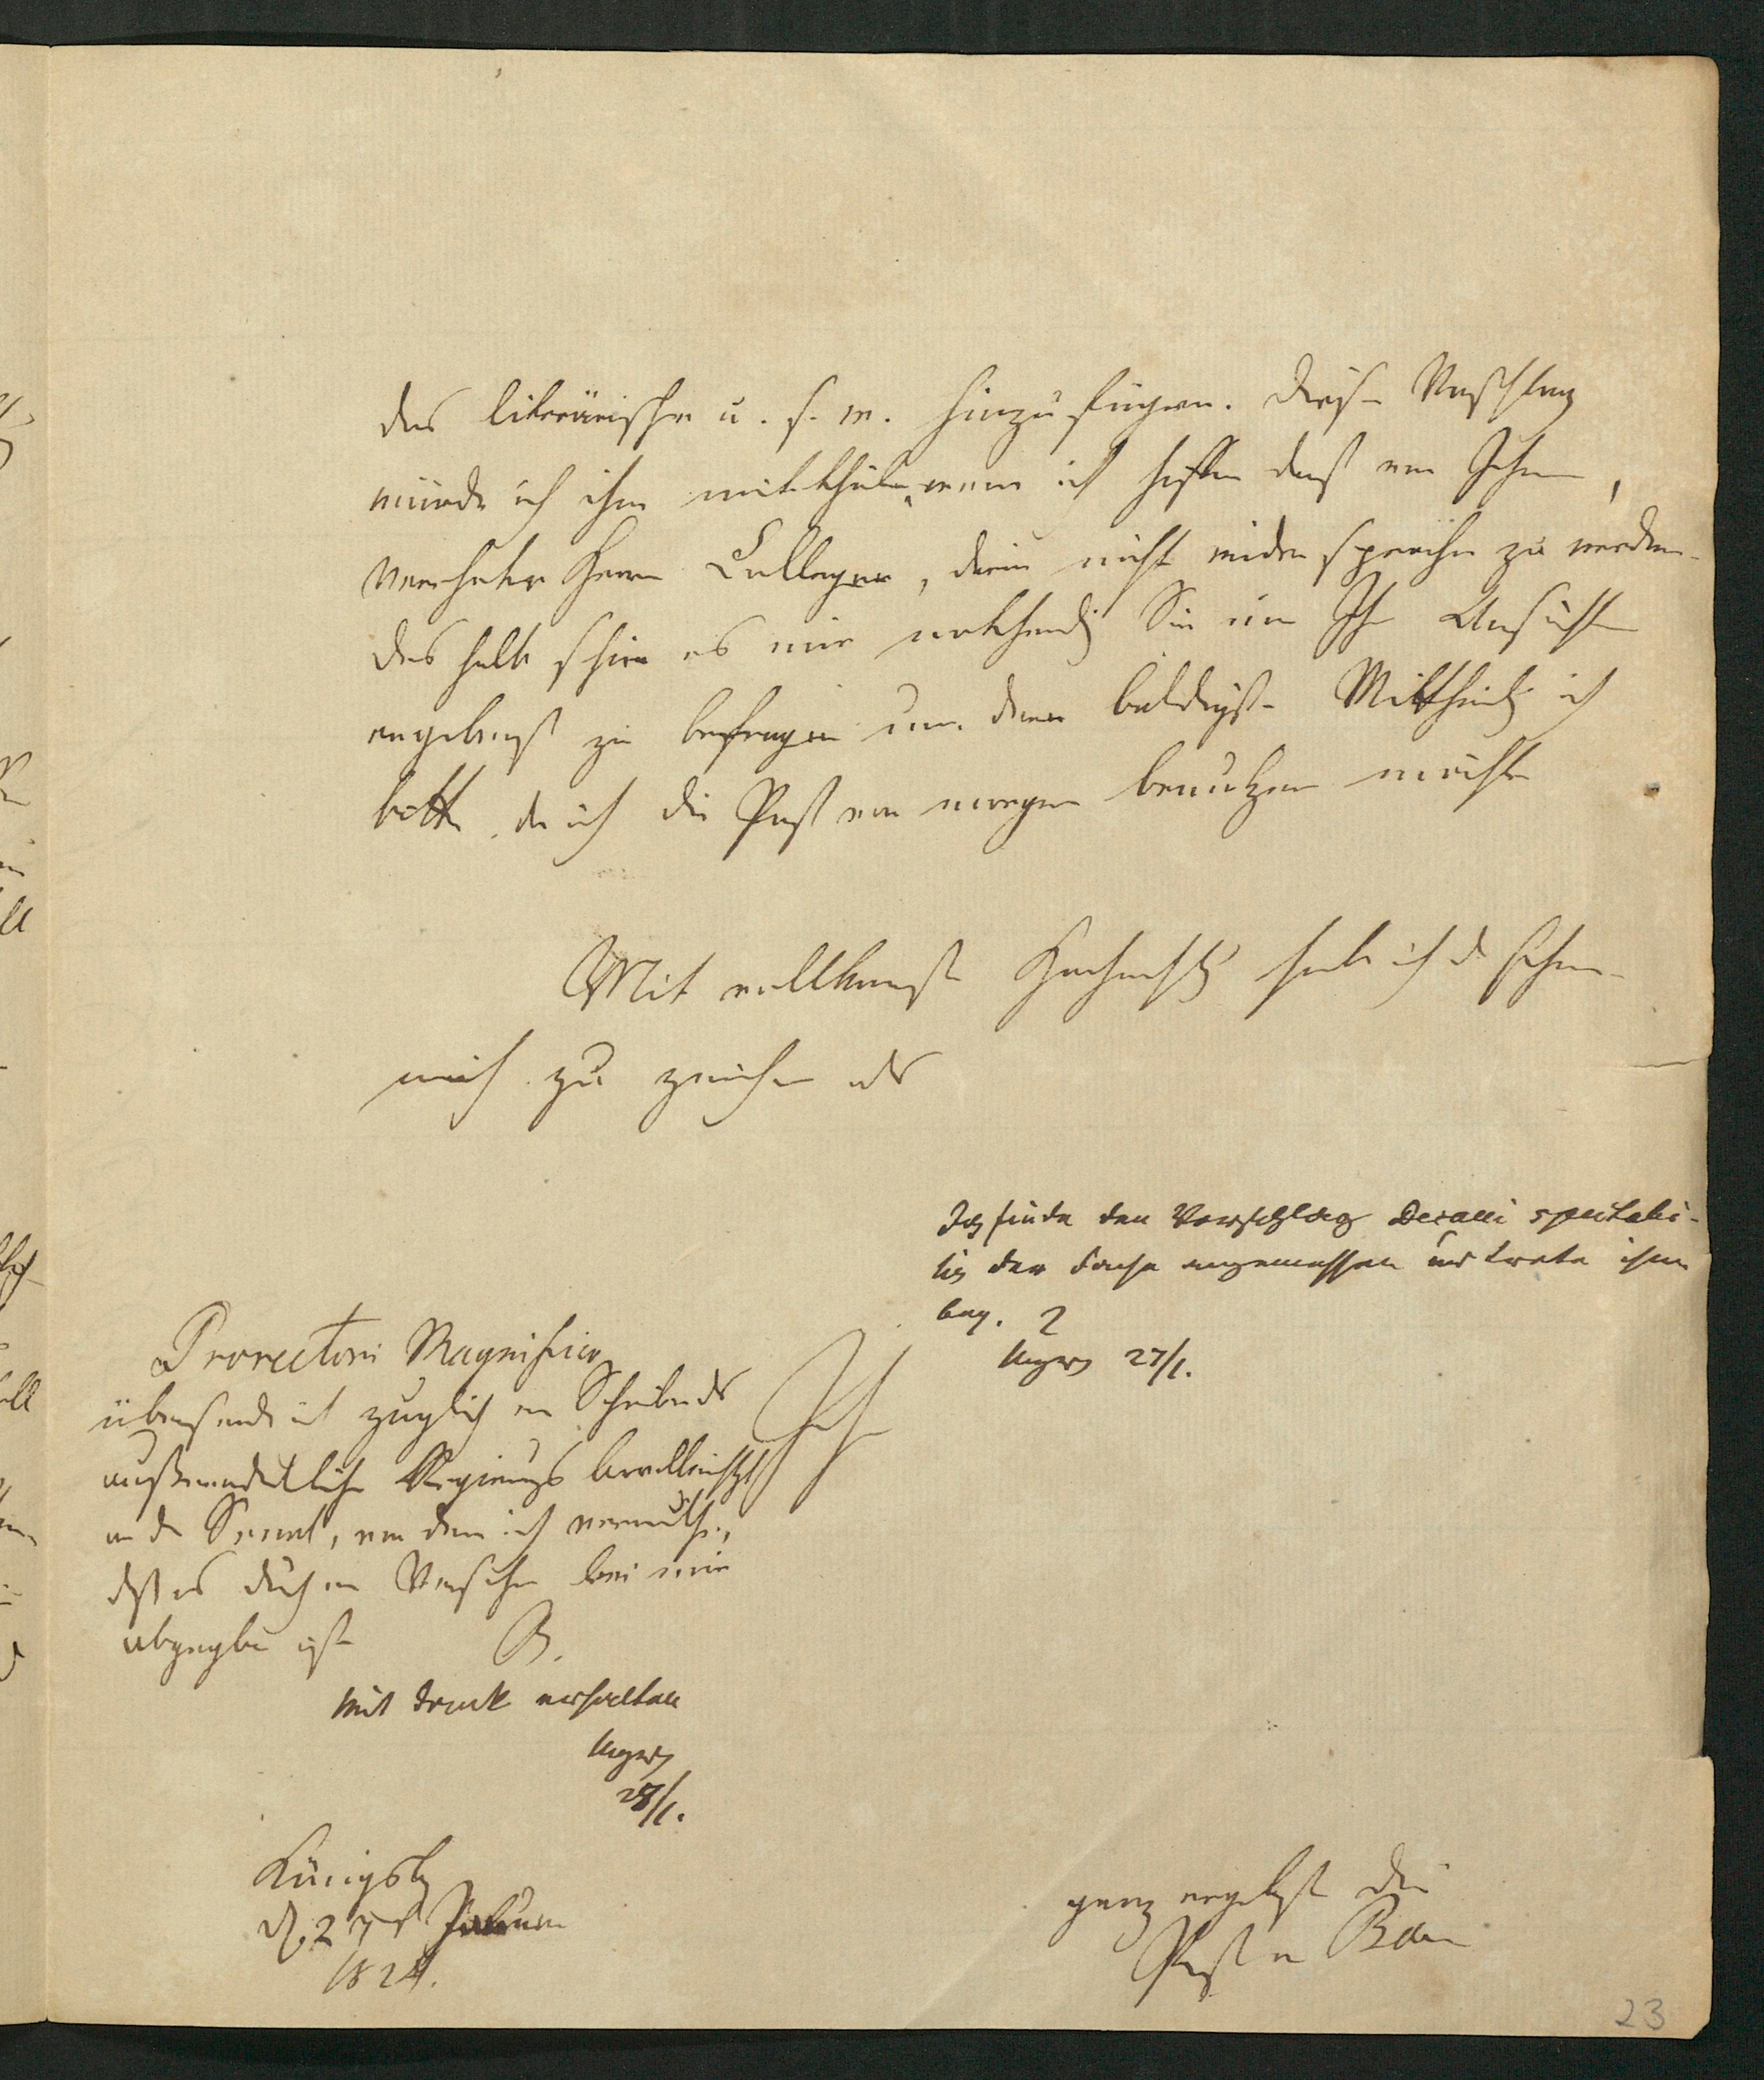 das literärische u. s. w. hinzufügen. Diesen Vorschlag
würde ich ihm mittheilen, wenn ich hoffen darf von Ihnen,
verehrte Herren Collegen, darin nicht widersprochen zu werden.
Deshalb schien es mir nothwendig Sie um Ihre Ansichten
ergebenst zu befragen um deren baldigste Mittheilung ich
bitte, da ich die Post von morgen benutzen möchte
Mit vollkommenster Hochachtung habe ich die Ehre
mich zu zeichnen als
Ich finde den Vorschlag Decani spectabi-
lis der Sache angemessen und trete ihm
bey.
27/1.
Prorectori Magnifico
übersende ich zugleich ein Schreiben des
außerordentlichen Regierungsbevollmächtigten
an den Senat, von dem ich vermuthe,
daß es durch ein Versehen bei mir
abgegeben ist
B.
Mit Dank erhalten
28/1.
Königsberg
d. 27t Januar
1824.
ganz ergebenster
Baer
23